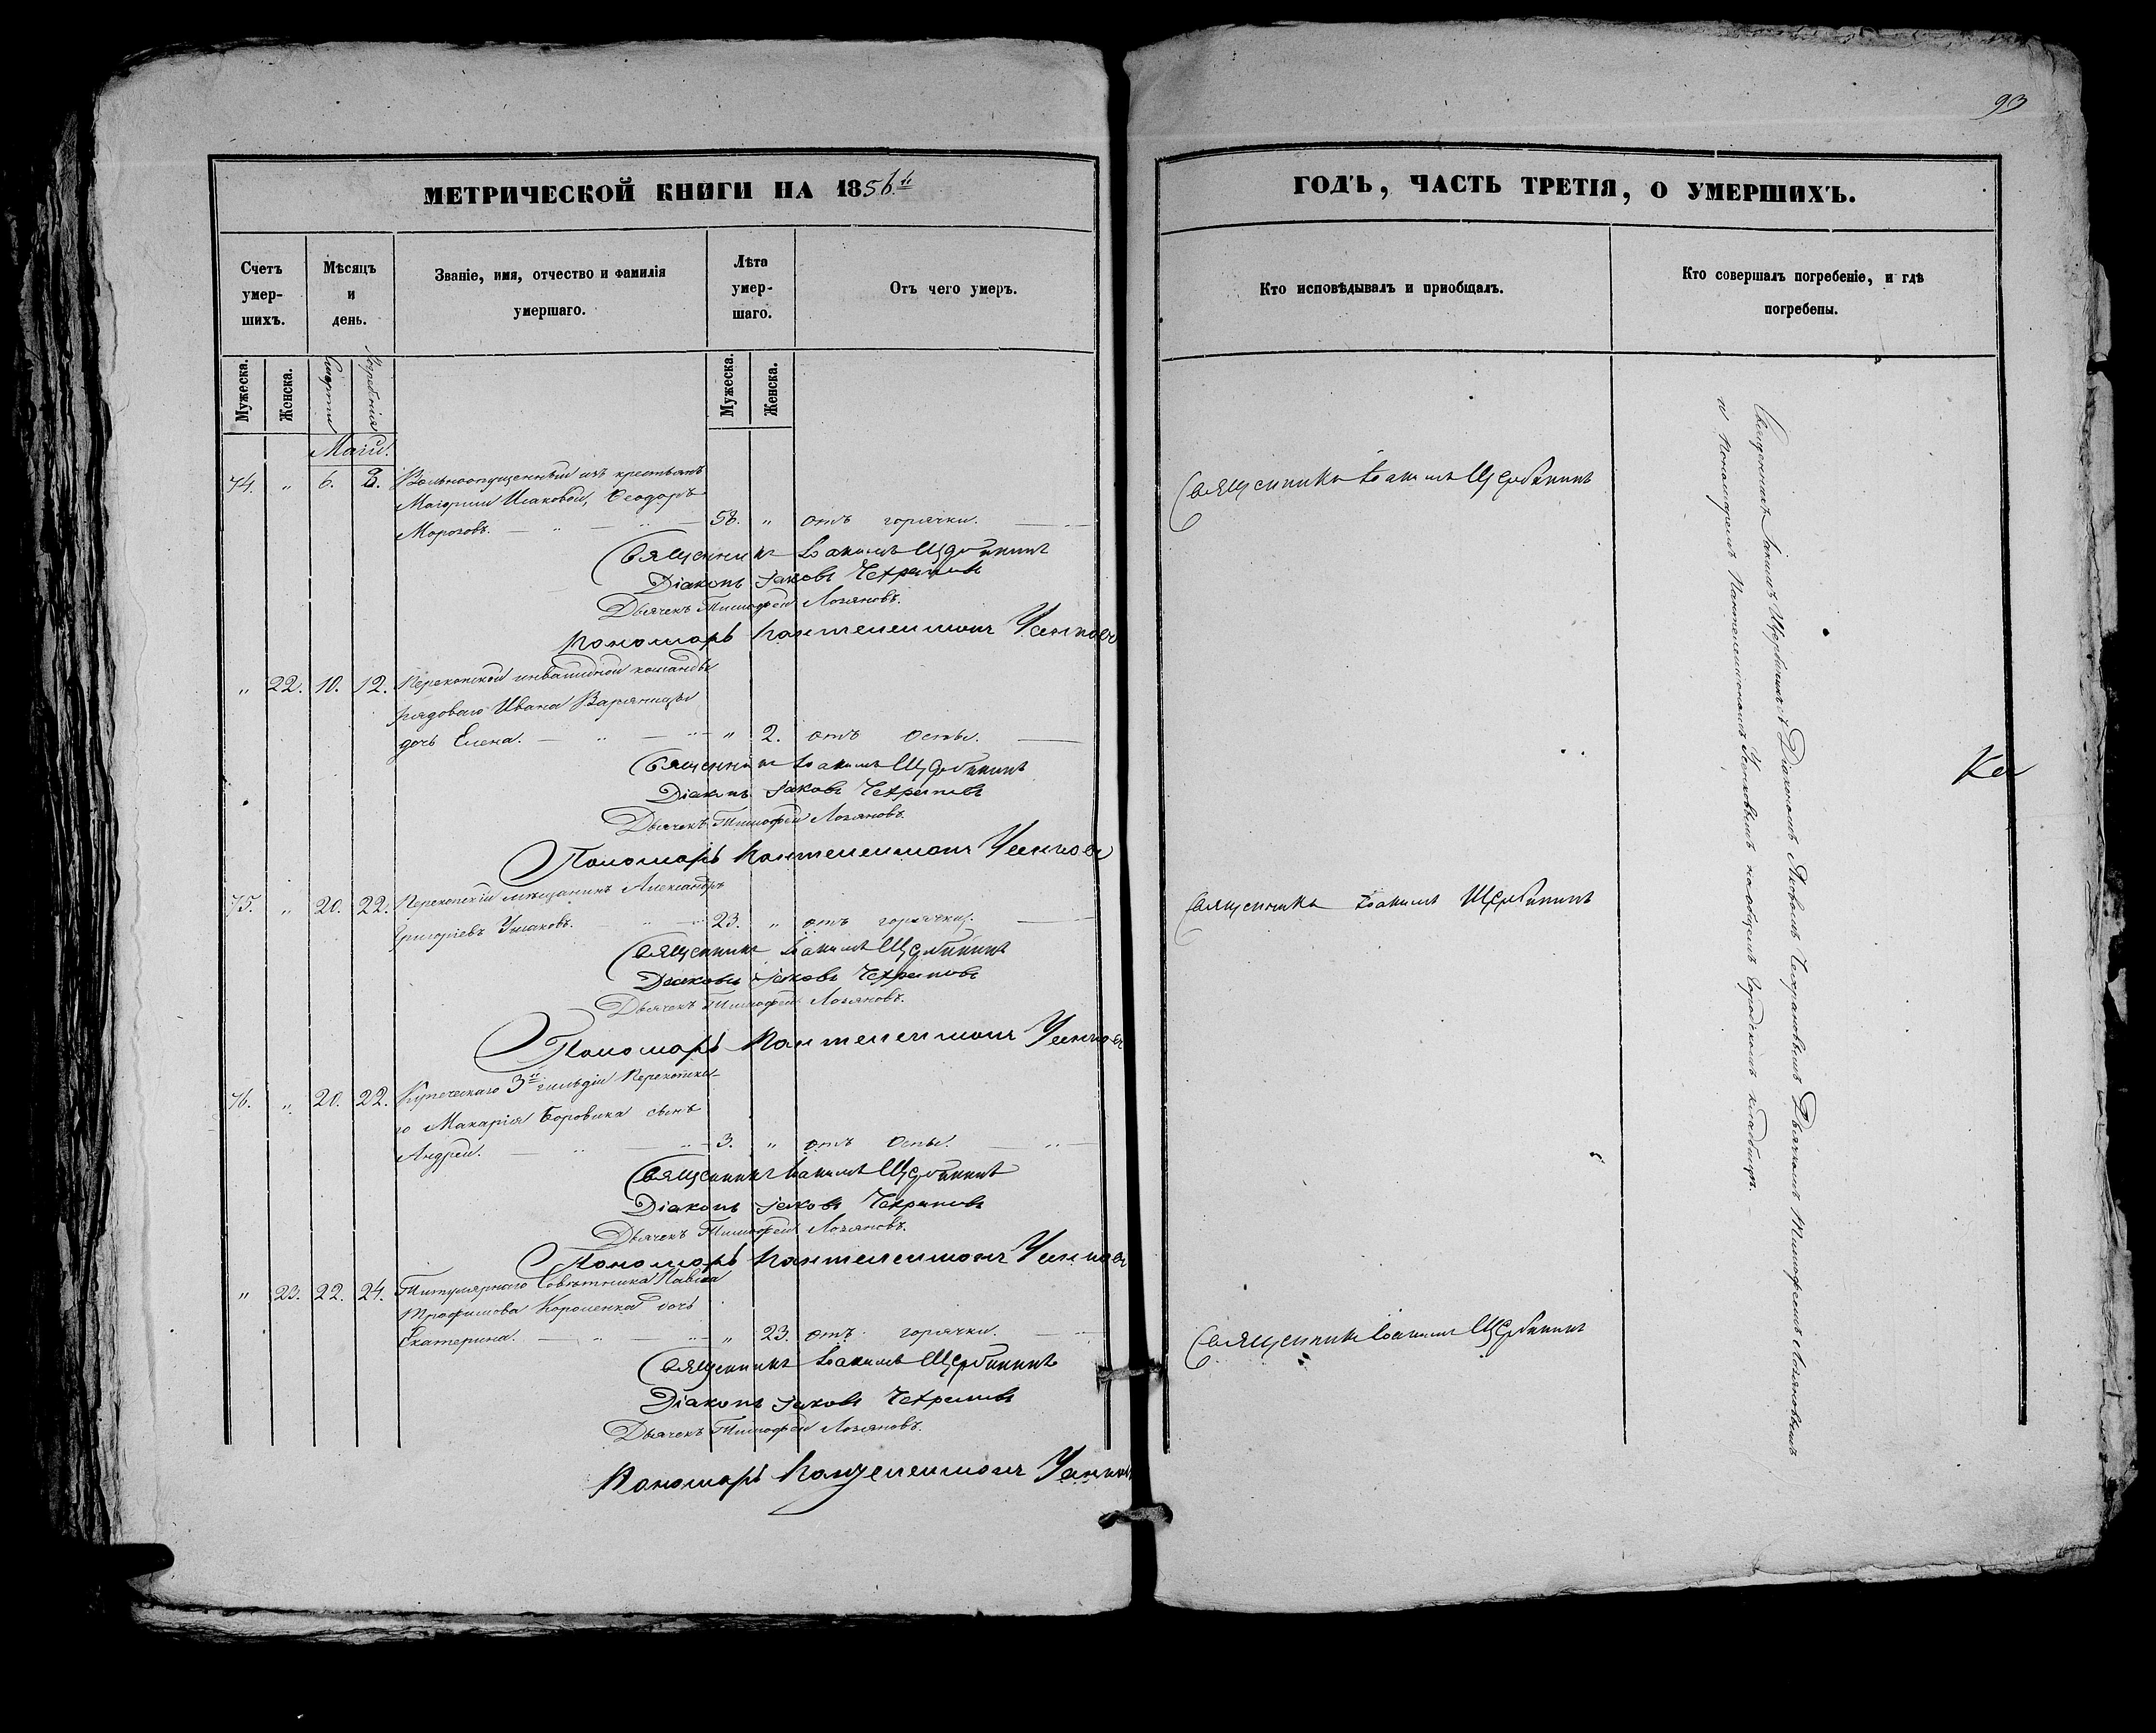 93
МЕТРИЧЕСКОЙ КНИГИ НА 1856й
ГОДЪ, ЧАСТЬ ТРЕТІЯ, О УМЕРШИХЪ.
Счетъ умер-шихъ.
Мѣсяцъ и день.
Званіе, имя, отчество и фамилія умершаго.
Лѣта умер-шаго.
Отъ чего умеръ.
Кто исповѣдывалъ и пріобщалъ.
Кто совершалъ погребеніе, и гдѣ погребены.
Мужеска.
Женска.
Смерти
Погребенія
Мужеска.
Женска.
Маій.
74. " 6. 8. Вольноотпущенный изъ крестьянъ
Маіорши Исаковой, Ѳеодоръ
Морозовъ. 58. " отъ горячки.
Священникъ Іоакимъ Щербининъ
Священникъ Іоакимъ Щербининъ
Діаконъ Іаковъ Чехрановъ
Дьячекъ Тимофей Лозяновъ.
Пономарь Пантелеимонъ
" 22. 10. 12. Перекопской инвалидной команды
рядоваго Ивана Варяницы
дочь Елена. " 2. отъ Оспы.
Священникъ Іоакимъ Щербининъ
Діаконъ Іаковъ Чехрановъ
Дьячекъ Тимофей Лозяновъ.
Пономарь Пантелеимонъ
75. " 20. 22. Перекопскій мѣщанинъ Александръ
Григоріевъ Ушаковъ. 23. " отъ горячки.
Священникъ Іоакимъ Щербининъ
Священникъ Іоакимъ Щербининъ
Діаконъ Іаковъ Чехрановъ
Дьячекъ Тимофей Лозяновъ.
Пономарь Пантелеимонъ
76. " 20. 22. Купеческаго 3й гильдіи Перекопска-
го Макарія Боровика сынъ
Андрей. 3. " отъ Оспы.
Священникъ Іоакимъ Щербининъ
Діаконъ Іаковъ Чехрановъ
Дьячекъ Тимофей Лозяновъ.
Пономарь Пантелеимонъ
" 23. 22. 24. Титулярнаго Совѣтника Павла
Трофимова Короленка дочь
Екатерина. " 23. отъ горячки.
Священникъ Іоакимъ Щербининъ
Священникъ Іоакимъ Щербининъ
Діаконъ Іаковъ Чехрановъ
Дьячекъ Тимофей Лозяновъ.
Пономарь Пантелеимонъ
Священникъ Іакимъ Щербининъ съ Діакономъ Яковомъ Чехрановымъ Дьячкомъ Тимофеемъ Лозяновымъ
и Пономаремъ Пантелеимономъ на общемъ городскомъ кладбищѣ.